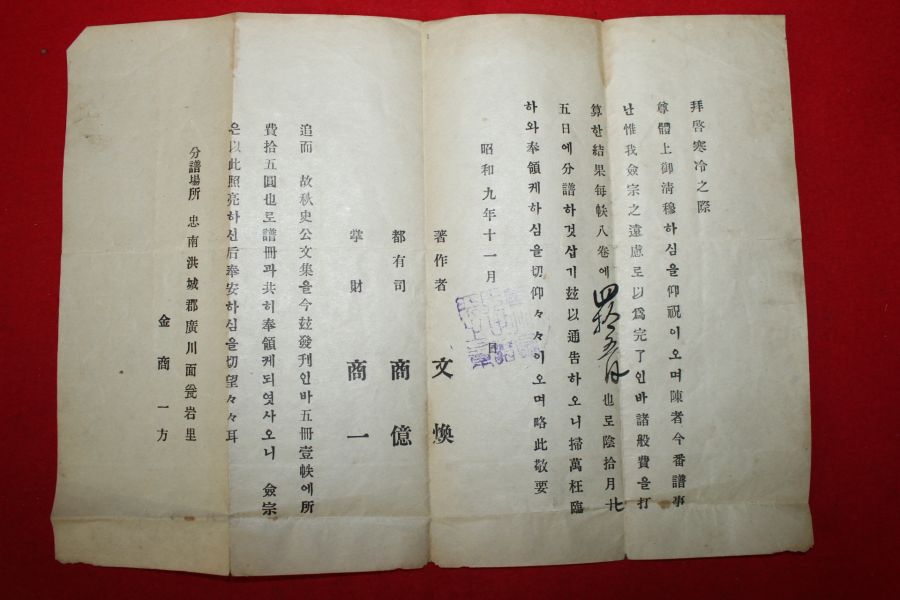 拜啓寒冷之際
尊體上御清穆하심을仰祝이오며陳者今番譜事
난惟我僉宗之遠慮로以爲完了인바諸般費을打
算한結果每帙八卷에四拾五円也로陰拾月廿
五日에分譜하것삽기玆以通告하오니掃萬枉臨
하와奉領케하심을切仰々々이오며略此敬要
昭和九年十一月 日
著作者 文煥
都有司 商億
掌財 商一
追而 故秋史公文集을今玆發刊인바五冊壹帙에所
費拾五圓也로譜冊과共히奉領케되엿사오니 僉宗
은以此照亮하신后奉安하심을切望々々耳
分譜場所 忠南洪城郡廣川面瓮岩里
金商一方